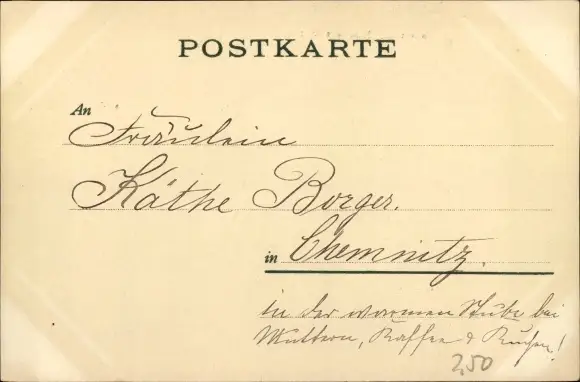 POSTKARTE
An
Fräulein
Käthe Borger.
in Chemnitz.
in der warmen Stube bei
Muttern, Kaffee & Kuchen!
2,50